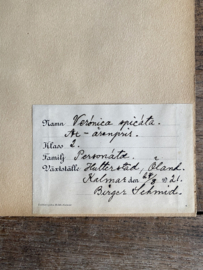 Namn Verónica spicáta.
Ax-ärenpris.
Klass 2.
Familj Personátæ.
Växtställe Hulterstad, Öland.
Kalmar den 21.
Birger Schmid.